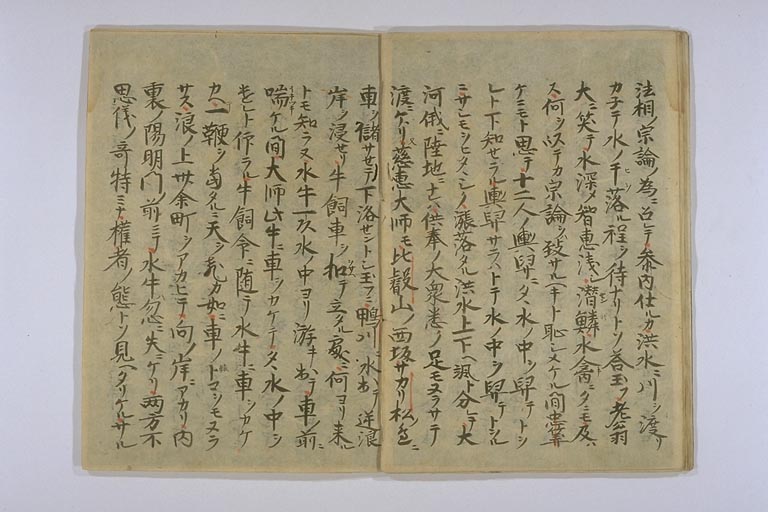 法相ノ宗論ノ為ニ召レテ参内仕ルカ洪水ニ川ヲ渡リ
カ子テ水ノ干落ル程ヲ待ナリトソ答玉フ老翁
大ニ笑テ水深ク智恵浅シ潜鱗水禽ニタニモ及ハ
ス何ヲ以テカ宗論ヲ致サルヘキト恥シメケル間忠算
ケニモト思テ十二人ノ輿舁ニタヽ水ノ中ヲ舁テトヲ
レト下知セラル輿舁サラハトテ水ノ中ヲ舁テトヲル
ニサシモヲヒタヽシク漲落タル洪水上下ヘ颯ト分レテ大
河俄ニ陸地ニナル供奉ノ大衆悉ク足モヌラサテ
渡ニケリ慈恵大師モ比叡山ノ西坂サカリ松ノ邊ニ
車ヲ儲サセテ下洛セントシ玉フニ鴨川ノ水出テ逆浪
岸ヲ浸セリ牛飼車ヲ扣テ立タル處ニ何ヨリ来ル
トモ知ラヌ水牛一頭水ノ中ヨリ游キ出テ車ノ前ニ
喘ケル間大師此牛ニ車ヲカケテタヽ水ノ中ヲ
ヤレト仰ラル牛飼命ニ随テ水牛ニ車ヲカケ
カヘ一鞭ヲ當タルニ天ヲ飛カ如ニ車ノトマシモヌラ
サス浪ノ上卅余町ヲアカヒテ向ノ岸ニアカリ内
裏ノ陽明門ノ前ニテ水牛忽ニ失ニケリ両方不
思儀ノ奇特ミナ権者ノ態トソ見ヘタリケルサル